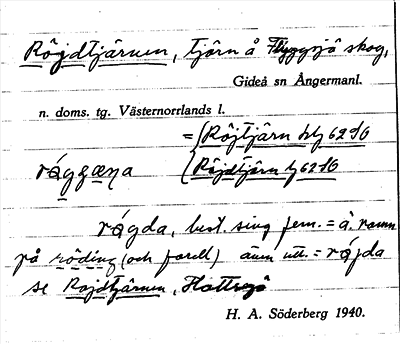 Röjdtjärnen, tjärn å Flyggsjö skog,
Gideå sn Ångermanl.
n. doms. tg. Västernorrlands l.
= { Röjtjärn hbg 62 SO
råggæna { Röjdtjärn bg 62 SO
rågda, best. sing. fem. = å. namn
på röding (och forell) även utt. = råjda
se Rojdtjärnen,
H. A. Söderberg 1940.